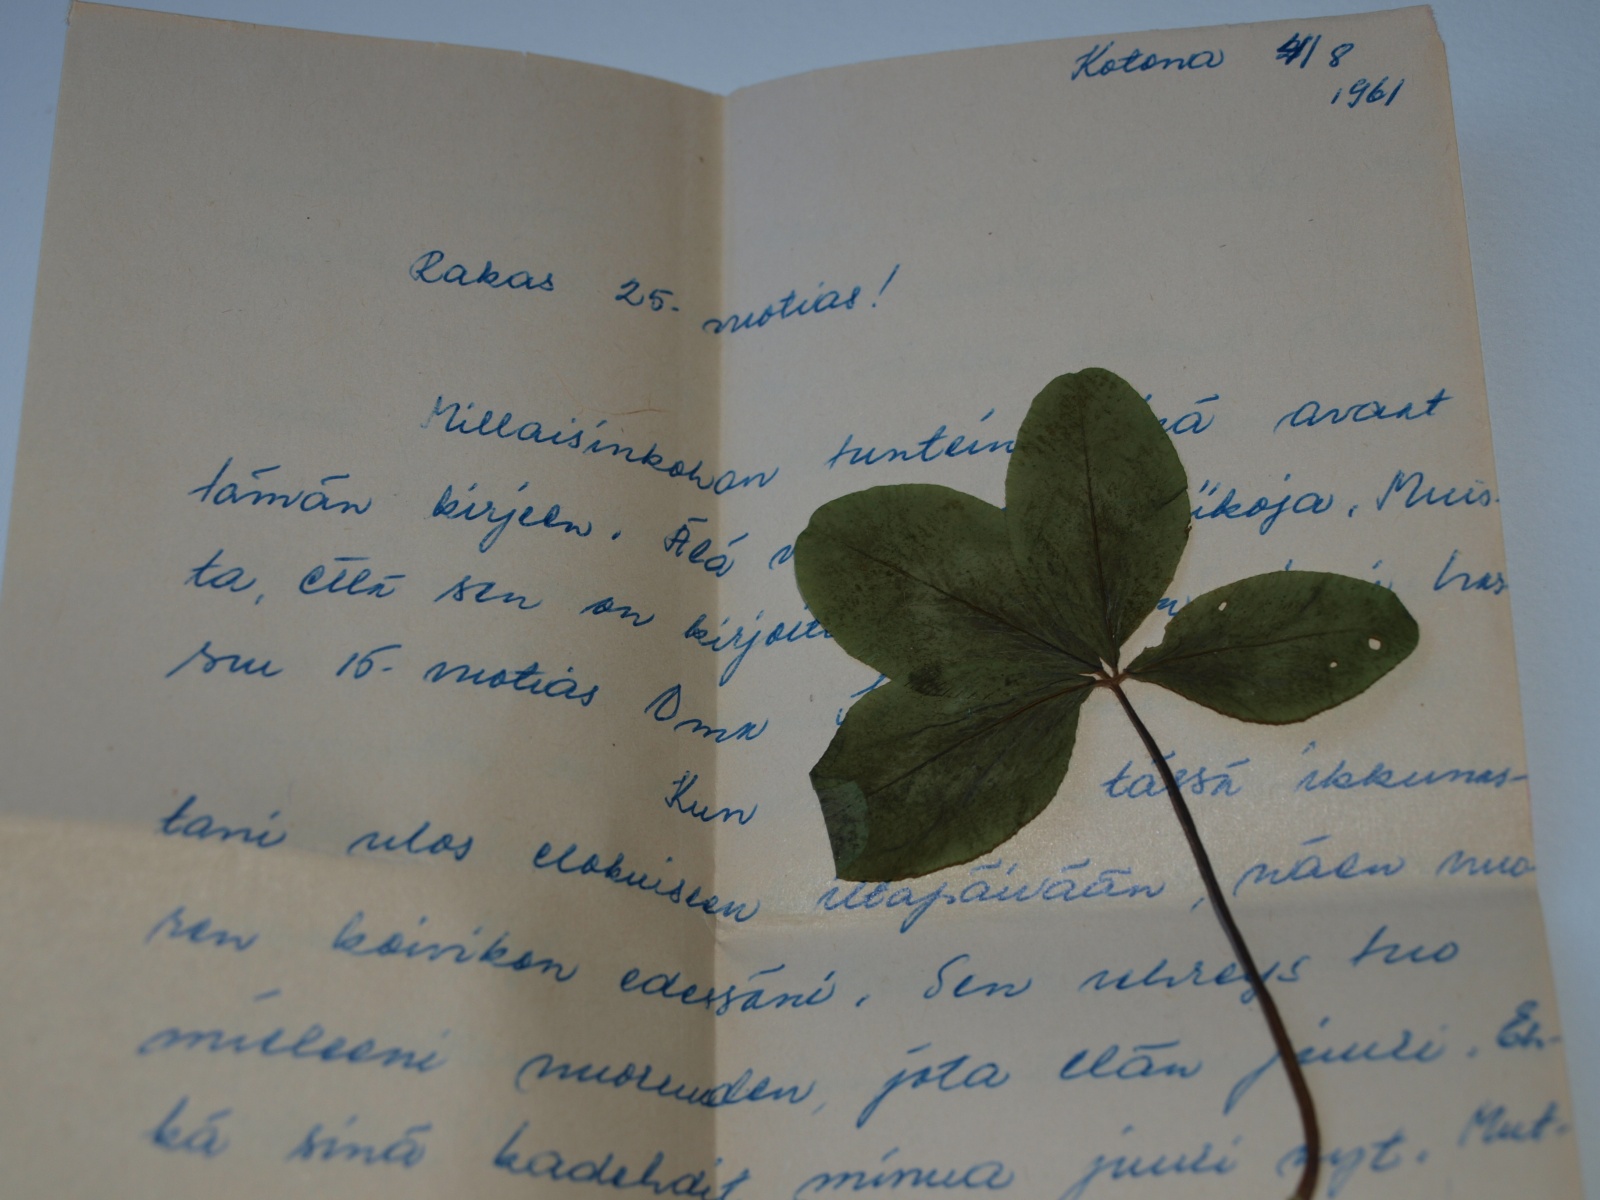 Kotona 4/8
1961
Rakas 25-vuotias!
Millaisinkohan tuntein sinä avaat
tämän kirjeen. Älä
ta, että sen on has
su 15-vuotias Oma
Kun tässä ikkunas-
tani ulos elokuiseen iltapäivään, näen nuo
ren koivikon edessäni. Sen vihreys tuo
mieleeni nuoruuden, jota elän juuri. Eh-
kä sinä kadehdit minua juuri nyt. Mut-